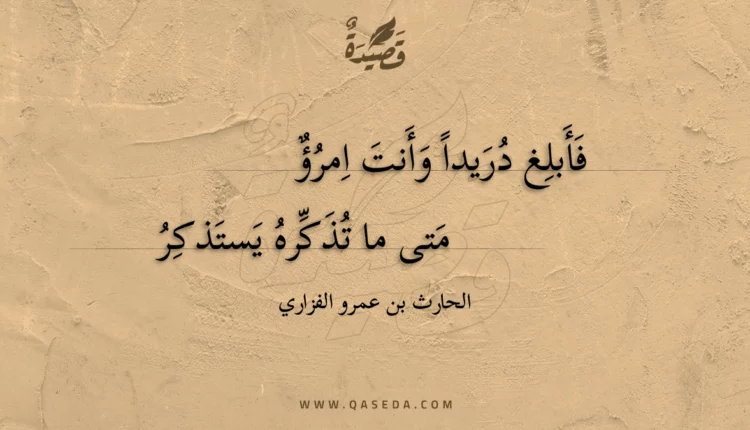 قَصِيدَةٌ
فَأَبلِغ دُرَيداً وَأَنتَ اِمرُؤٌ
مَتى ما تُذَكِّرهُ يَستَذكِرُ
الحارث بن عمرو الفزاري
WWW.QASEDA.COM